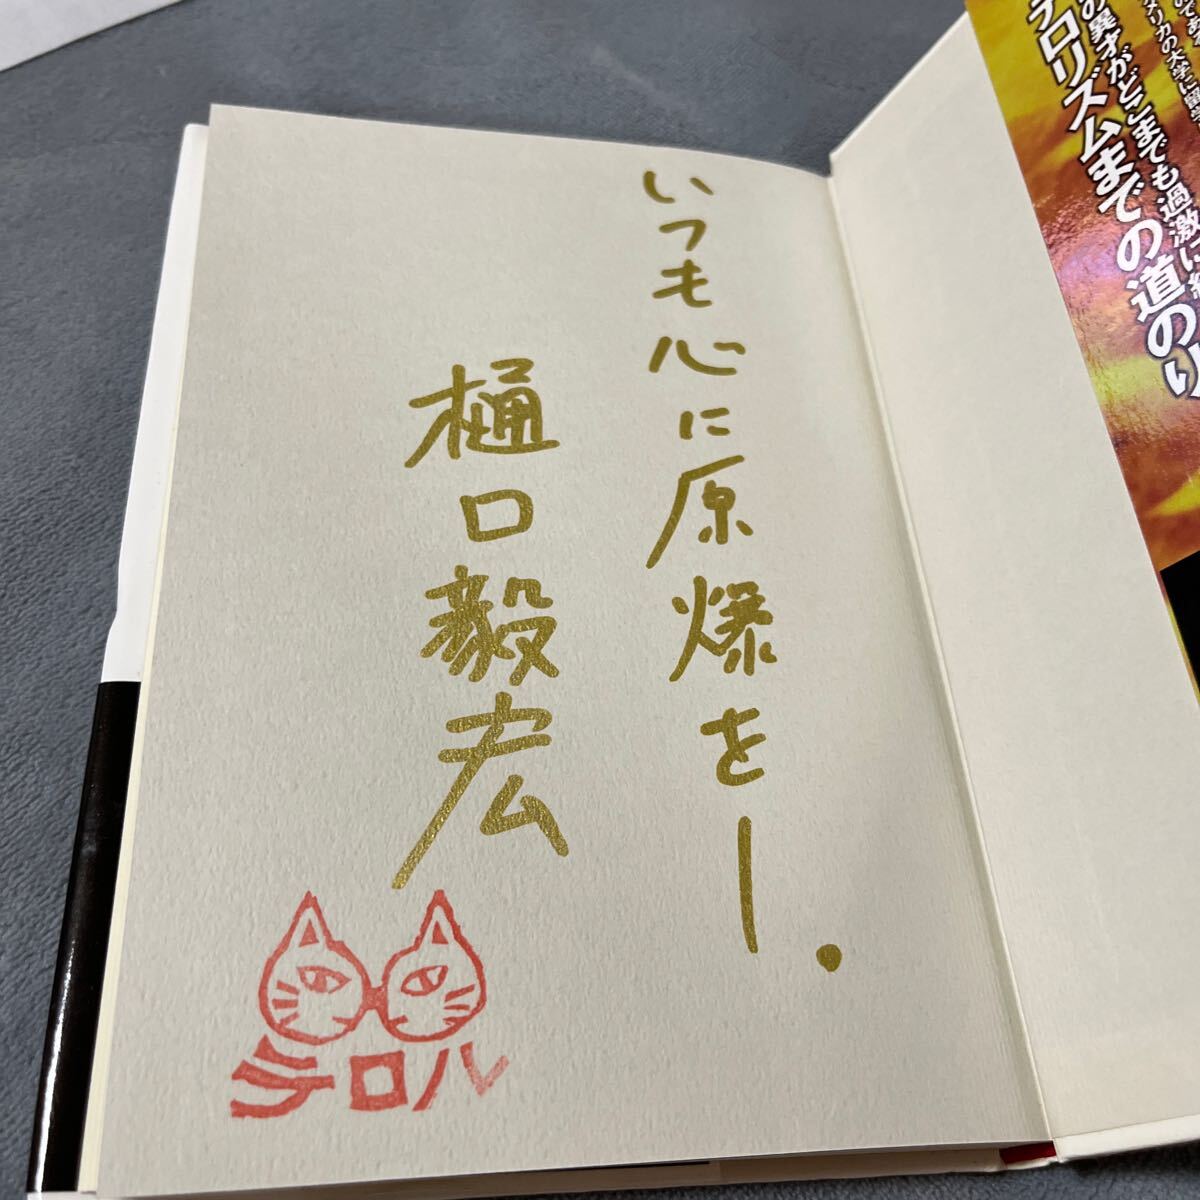 の異才がどこまでも過激に
テロリズムまでの道のり
メリカの大学に留学
いつも心に原爆を!.
樋口毅宏
テロル